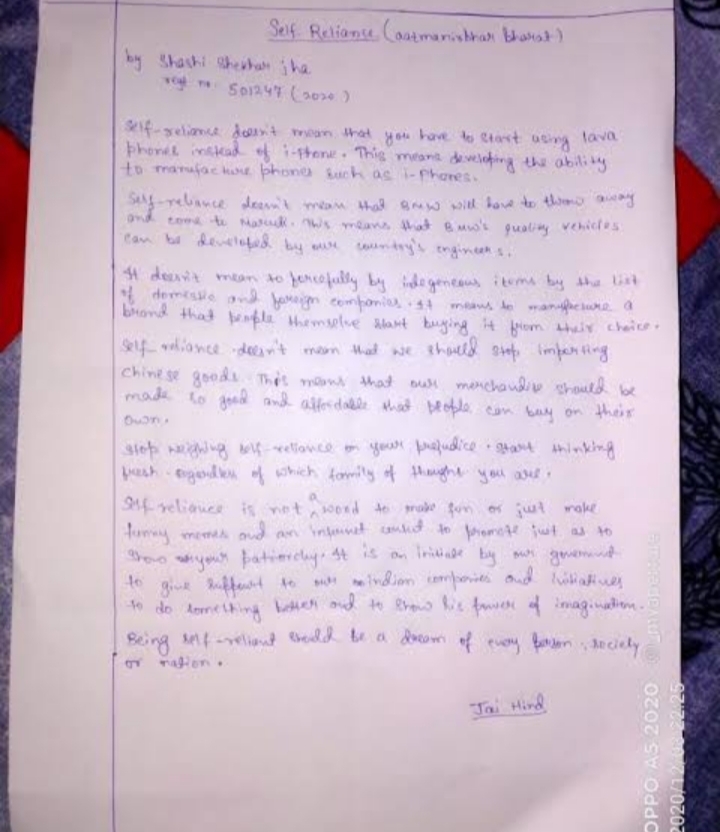 Self Reliance (aatmanirbhar bharat)
by Shashi Shekhar jha
regt no. 501247 (2020)
Self-reliance doesn't mean that you have to start using lava
phones instead of i-phone. This means developing the ability
to manufacture phones such as i-Phones.
Self-reliance doesn't mean that BMW will have to throw away
and come to Maruti. This means that BMW's quality vehicles
can be developed by our country's engineers.
It doesn't mean to forcefully by idegeneous items by the list
of domestic and foreign companies. It means to manufacture a
brand that people themselve start buying it from their choice.
Self-reliance doesn't mean that we should stop importing
chinese goods. This means that our merchandise should be
made so good and affordable that people can buy on their
own.
Stop weighing self-reliance on your prejudice. Start thinking
fresh regardless of which family of thought you are.
Self reliance is not a word to make fun or just make
funny memes and an internet to promote just as to
show your patriarchy. It is an initiate by our
to give support to our indian companies and initiatives
to do something better and to show his power of imagination.
Being self-reliant should be a dream of every person, society
or nation.
Jai Hind
OPPO A5 2020